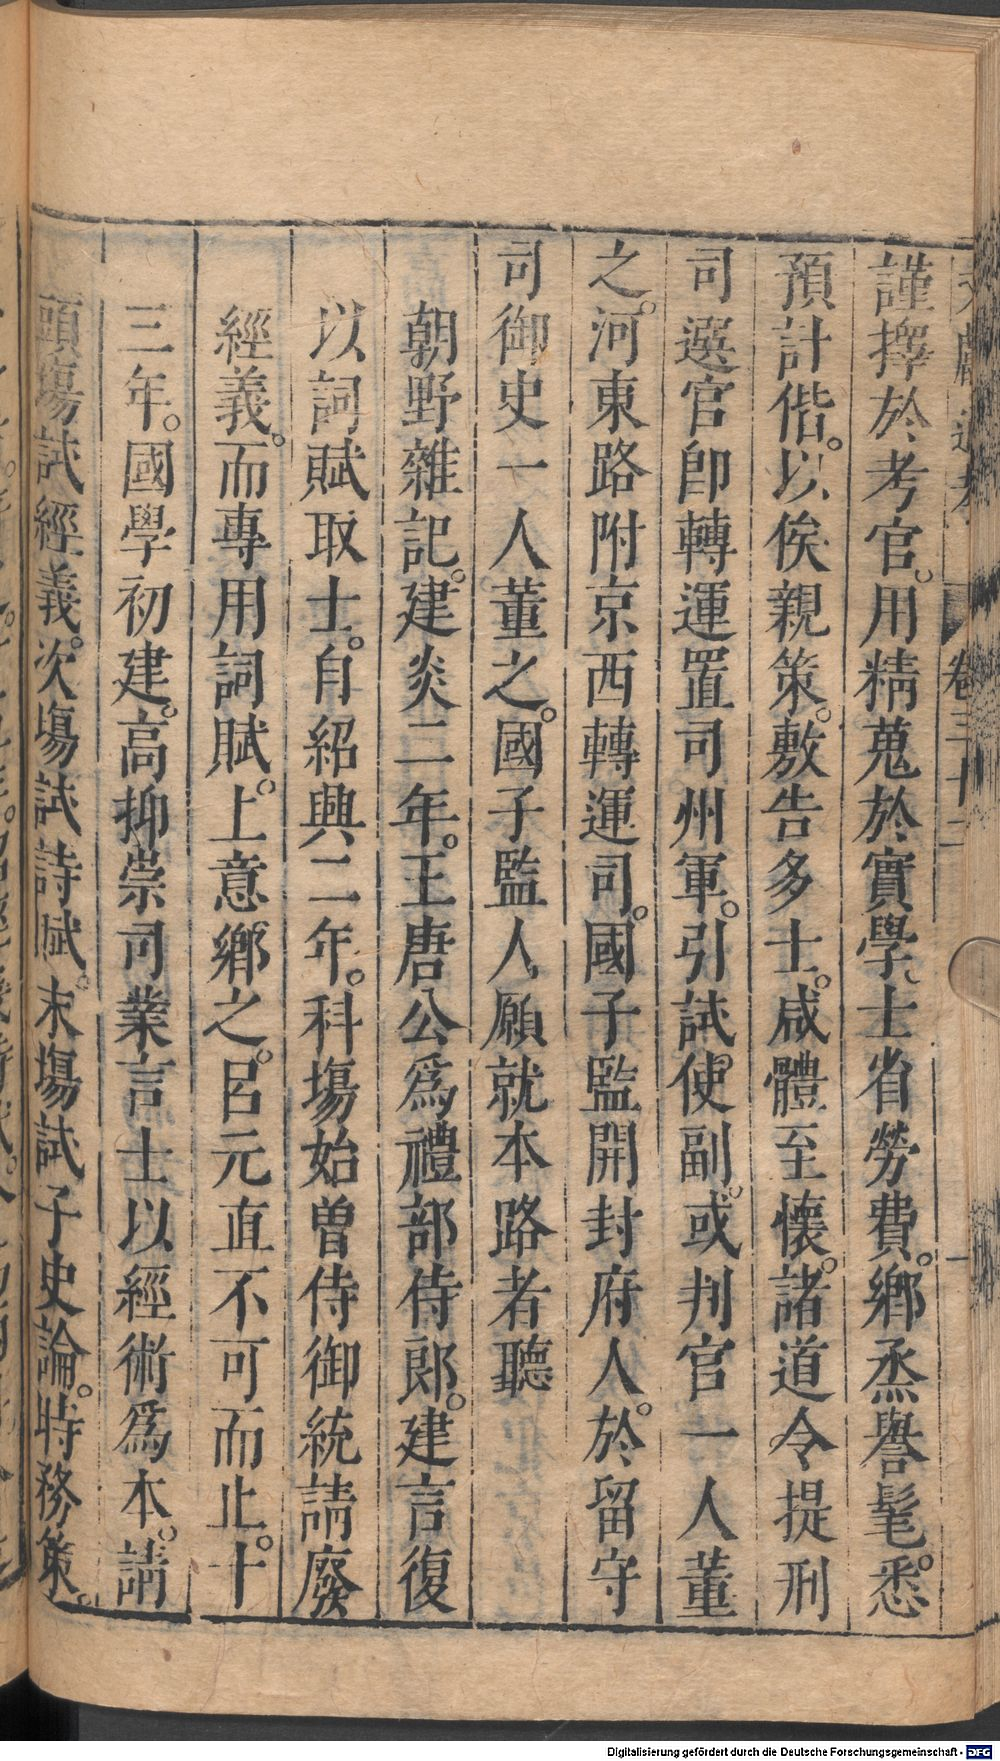 謹擇於考官。用精蒐於實學。士省勞費。鄉烝譽髦。悉
預計偕。以俟親策。敷告多士。咸體至懷。諸道令提刑
司選官卽轉運置司州軍。引試使副。或判官一人董
之。河東路附京西轉運司。國子監開封府人。於留守
司御史一人董之。國子監人願就本路者聽
朝野雜記。建炎二年。王唐公爲禮部侍郎。建言復
以詞賦取士。自紹興二年。科場始曾侍御統請廢
經義。而專用詞賦。上意鄉之。呂元直不可而止。十
三年。國學初建。高抑崇司業言士以經術爲本。請
頭塲試經義。次塲試詩賦。末塲試子史論。時務策。
卷三十二
Digitalisierung gefördert durch die Deutsche Forschungsgemeinschaft - DFG